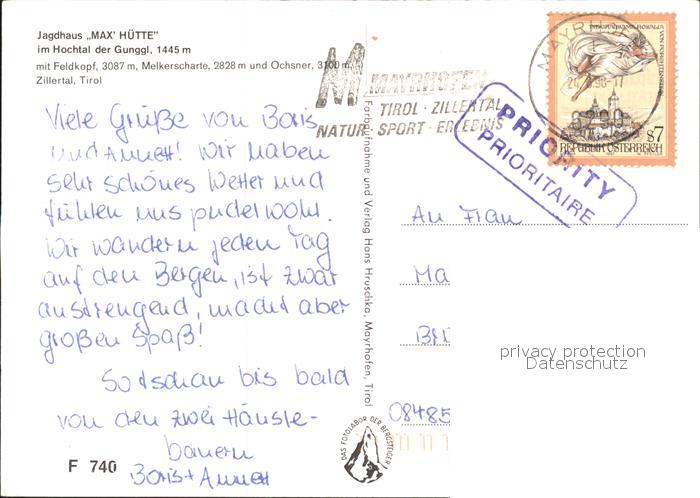 Jagdhaus „MAX' HÜTTE"
im Hochtal der Gunggl, 1445 m
mit Feldkopf, 3087 m, Melkerscharte, 2828 m und Ochsner, 3100 m
Zillertal, Tirol
Viele Grüße von Boris
und Annett! Wir haben
sehr schönes Wetter und
fühlen uns pudelwohl.
Wir wandern jeden Tag
auf den Bergen, ist zwar
anstrengend, macht aber
großen Spaß!
bis bald
von den zwei Häusle-
bauern
Boris + Annett
F 740
Farbaufnahme und Verlag Hans Hruschka, Mayrhofen, Tirol
DAS FOTOLABOR DER BERGSTEIGER
MAYRHOFEN
TIROL · ZILLERTAL
NATUR · SPORT · ERLEBNIS
MAYRHOFEN
PRIORITY
PRIORITAIRE
S7
REPUBLIK ÖSTERREICH
An Frau
Ma
08485
privacy protection
Datenschutz